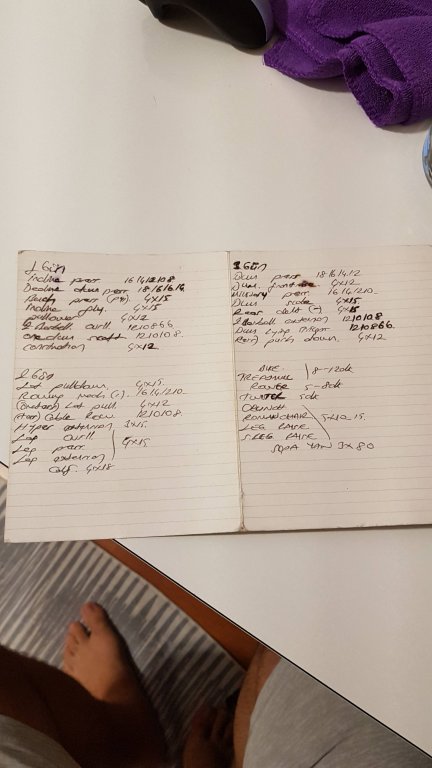 1 Gün
Incline press 16 14 12 10 8
Decline dum press 18 16 16 14
press 4x15
Incline fly. 4x15
pullower 4x12
Z Barbell curll 12 10 8 6 6
one dum scott 12 10 8.
consantration 4x12
2 Gün
Lat pulldown, 4x15.
Rowing mach (-). 16 14 12 10.
(one arm) Lat pull. 4x12
Cable Row 12 10 10 8
Hyper extension 3x15.
Leg curll
Leg press 4x15
Leg extension
Calf. 4x18
3 Gün
Dum press 18 16 14 12
Dum. front 4x12
Military press 16 14 12 10.
Dum side 4x15
Rear delt (-) 4x15
Z Barbell extension 12 10 10 8
Dum 12 10 8 6 6.
push down. 4x12
8-12dk
TREADMILL
ROWER 5-8dk
5dk
CRUNCH
ROMAN CHAIR 5x10-15
LEG RAISE
S. LEG RAISE
YAN 3x80